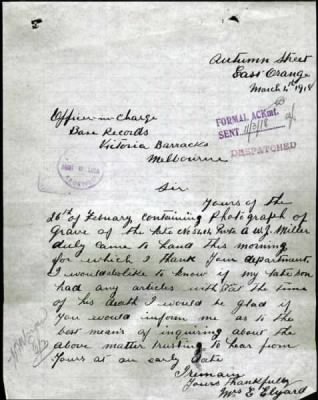 Autumn Street
East Orange
March 4th 1918
Officer-in-Charge
Base Records
Victoria Barracks
Melbourne
FORMAL ACKmt.
SENT 11/3/18
DESPATCHED
Sir
Yours of the
26th of Febuary containing Photograph of
Grave of the late Pvte A W J. Miller
duly came to hand this morning
for which I thank Your department
I would also like to know if my late son
had any articles with at the time
of his death I would be glad if
You would inform me as to the
best means of inquiring about the
above matter trusting to hear from
Yours at an early date
I remain
Yours thankfully
Mrs E Elyard